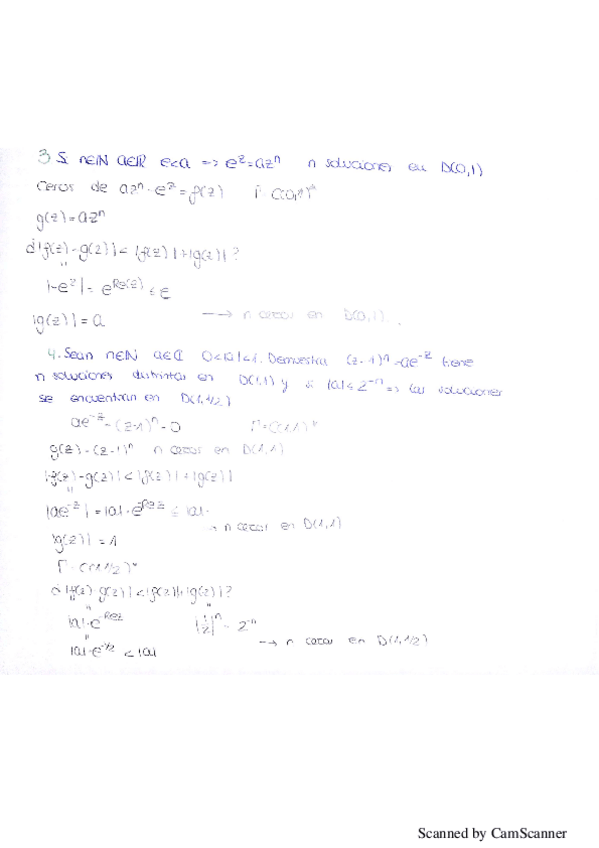 3 Si n∈ℕ a∈ℝ e<a => e^z=az^n n soluciones en D(0,1)
Ceros de az^n-e^z=f(z) Γ=C(0,1)^+
g(z)=az^n
¿|f(z)-g(z)|<|f(z)|+|g(z)|?
|-e^z|=e^{Re(z)}≤e
|g(z)|=a --> n ceros en D(0,1).
4. Sean n∈ℕ a∈ℂ 0<|a|<1. Demuestra (z-1)^n=ae^{-z} tiene
n soluciones distintas en D(1,1) y si |a|≤2^{-n} => las soluciones
se encuentran en D(1,1/2)
ae^{-z}-(z-1)^n=0 Γ=C(1,1)^+
g(z)=(z-1)^n n ceros en D(1,1)
|f(z)-g(z)|<|f(z)|+|g(z)|
|ae^{-z}|=|a|·e^{-Re z}≤|a|.
-> n ceros en D(1,1)
|g(z)|=1
Γ=C(1,1/2)^+
¿|f(z)-g(z)|<|f(z)|+|g(z)|?
|a|·e^{-Re z} |1/2|^n=2^{-n}
|a|·e^{-1/2}<|a| --> n ceros en D(1,1/2)
Scanned by CamScanner